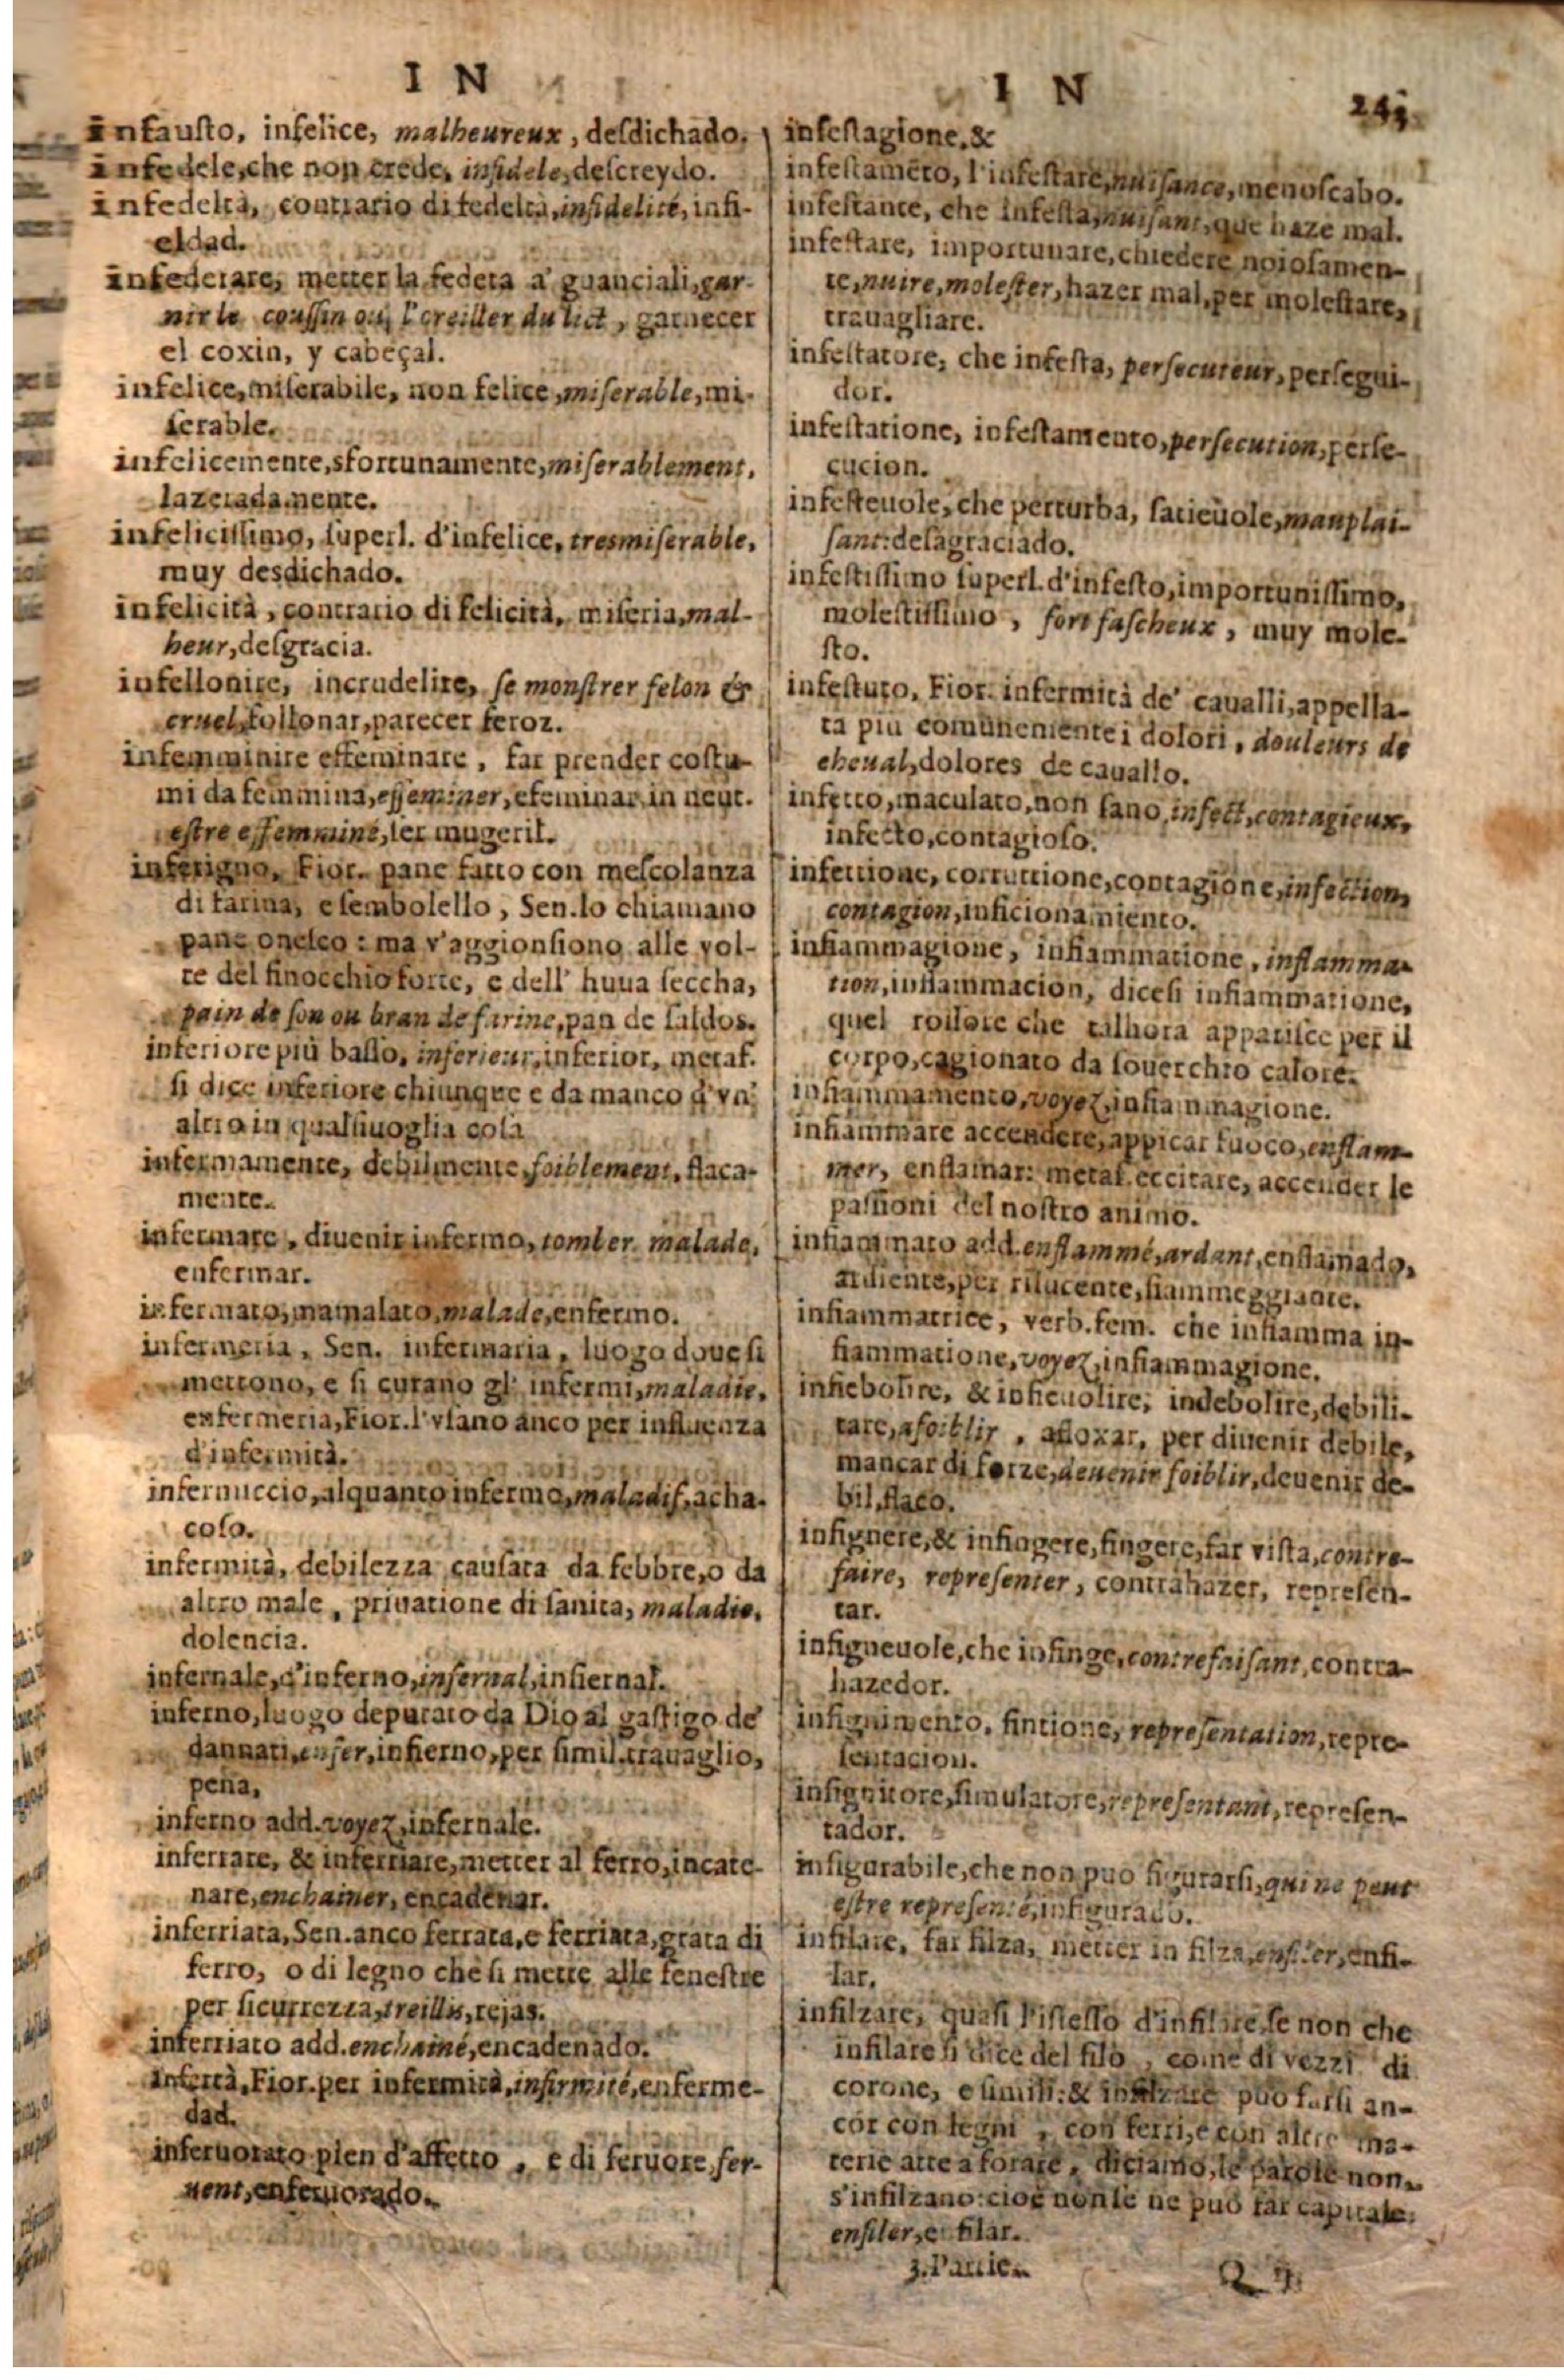 I N
infausto, infelice, malheureux, desdichado.
infedele, che non crede, infidele, descreydo.
infedeltà, contrario di fedeltà, infidelité, infi-
eldad.
infederare, metter la federa a' guanciali, gar-
nir le coussin ou l'oreiller du lict, garnecer
el coxin, y cabeçal.
infelice, miserabile, non felice, miserable, mi-
serable.
infelicemente, sfortunamente, miserablement,
lazeradamente.
infelicissimo, superl. d'infelice, tresmiserable,
muy desdichado.
infelicità, contrario di felicità, miseria, mal-
heur, desgracia.
infellonire, incrudelire, se monstrer felon &
cruel, follonar, parecer feroz.
infemminire effeminare, far prender costu-
mi da femmina, effeminer, efeminar in neut.
estre effemminé, ser mugeril.
inferigno, Fior. pane fatto con mescolanza
di farina, e sembolello, Sen. lo chiamano
pane : ma v'aggionsiono alle vol-
te del finocchio forte, e dell' huua seccha,
pain de son ou bran de farine, pan de saldos.
inferiore più basso, inferieur, inferior, metaf.
si dice inferiore chiunque e da manco d'vn'
altro in qualsiuoglia cosa
infermamente, debilmente, foiblement, flaca-
mente.
infermare, diuenir infermo, tomber malade,
enfermar.
infermato, mamalato, malade, enfermo.
infermeria, Sen. infermaria, luogo doue si
mettono, e si curano gl' infermi, maladie,
enfermeria, Fior. l'vsano anco per influenza
d'infermità.
infermuccio, alquanto infermo, maladif, acha-
coso.
infermità, debilezza causata da febbre, o da
altro male, priuatione di sanita, maladie,
dolencia.
infernale, d'inferno, infernal, infiernal.
inferno, luogo deputato da Dio al gastigo de'
dannati, enfer, infierno, per simil. trauaglio,
pena,
inferno add. voyez, infernale.
inferrare, & inferriare, metter al ferro, incate-
nare, enchainer, encadenar.
inferriata, Sen. anco ferrata, e ferriata, grata di
ferro, o di legno che si mette alle fenestre
per sicurrezza, treillis, rejas.
inferriato add. enchainé, encadenado.
infertà, Fior. per infermità, infirmité, enferme-
dad.
inferuorato pien d'affetto, e di feruore, fer-
uent, enferuorado.
I N
infestagione, &
infestamēto, l'infestare, nuisance, menoscabo.
infestante, che infesta, nuisant, que haze mal.
infestare, importunare, chiedere noiosamen-
te, nuire, molester, hazer mal, per molestare,
trauagliare.
infestatore, che infesta, persecuteur, persegui-
dor.
infestatione, infestamento, persecution, perse-
cucion.
infesteuole, che perturba, satieuole, mauplai-
sant: desagraciado.
infestissimo superl. d'infesto, importunissimo,
molestissimo, fort fascheux, muy mole-
sto.
infestuto, Fior. infermità de' caualli, appella-
ta piu comunemente i dolori, douleurs de
cheual, dolores de cauallo.
infetto, maculato, non sano, infect, contagieux,
infecto, contagioso.
infettione, corruttione, contagione, infection,
contagion, inficionamiento.
infiammagione, infiammatione, inflamma-
tion, inflammacion, dicesi infiammatione,
quel rossore che talhora apparisce per il
corpo, cagionato da souerchio calore.
infiammamento, voyez, infiammagione.
infiammare accendere, appicar fuoco, enflam-
mer, enflamar: metaf. eccitare, accender le
passioni del nostro animo.
infiammato add. enflammé, ardant, enflamado,
ardiente, per rilucente, fiammeggiante.
infiammatrice, verb. fem. che infiamma in-
fiammatione, voyez, infiammagione.
infiebolire, & infieuolire, indebolire, debili-
tare, afoiblir, afloxar, per diuenir debile,
mancar di forze, deuenir foiblir, deuenir de-
bil, flaco.
infignere, & infingere, fingere, far vista, contre-
faire, representer, contrahazer, represen-
tar.
infigneuole, che infinge, contrefaisant, contra-
hazedor.
infignimento, fintione, representation, repre-
sentacion.
infignitore, simulatore, representant, represen-
tador.
infigurabile, che non puo figurarsi, qui ne peut
estre representé, infigurado.
infilare, far filza, metter in filza, enfiler, enfi-
lar.
infilzare, quasi l'istesso d'infilare, se non che
infilare si dice del filo, come di vezzi di
corone, e simili: & infilzare può farsi an-
cor con legni, con ferri, e con altre ma-
terie atte a forare, diciamo, le parole non
s'infilzano: cioè non se ne può far capitale.
enfiler, enfilar.
3. Partie.